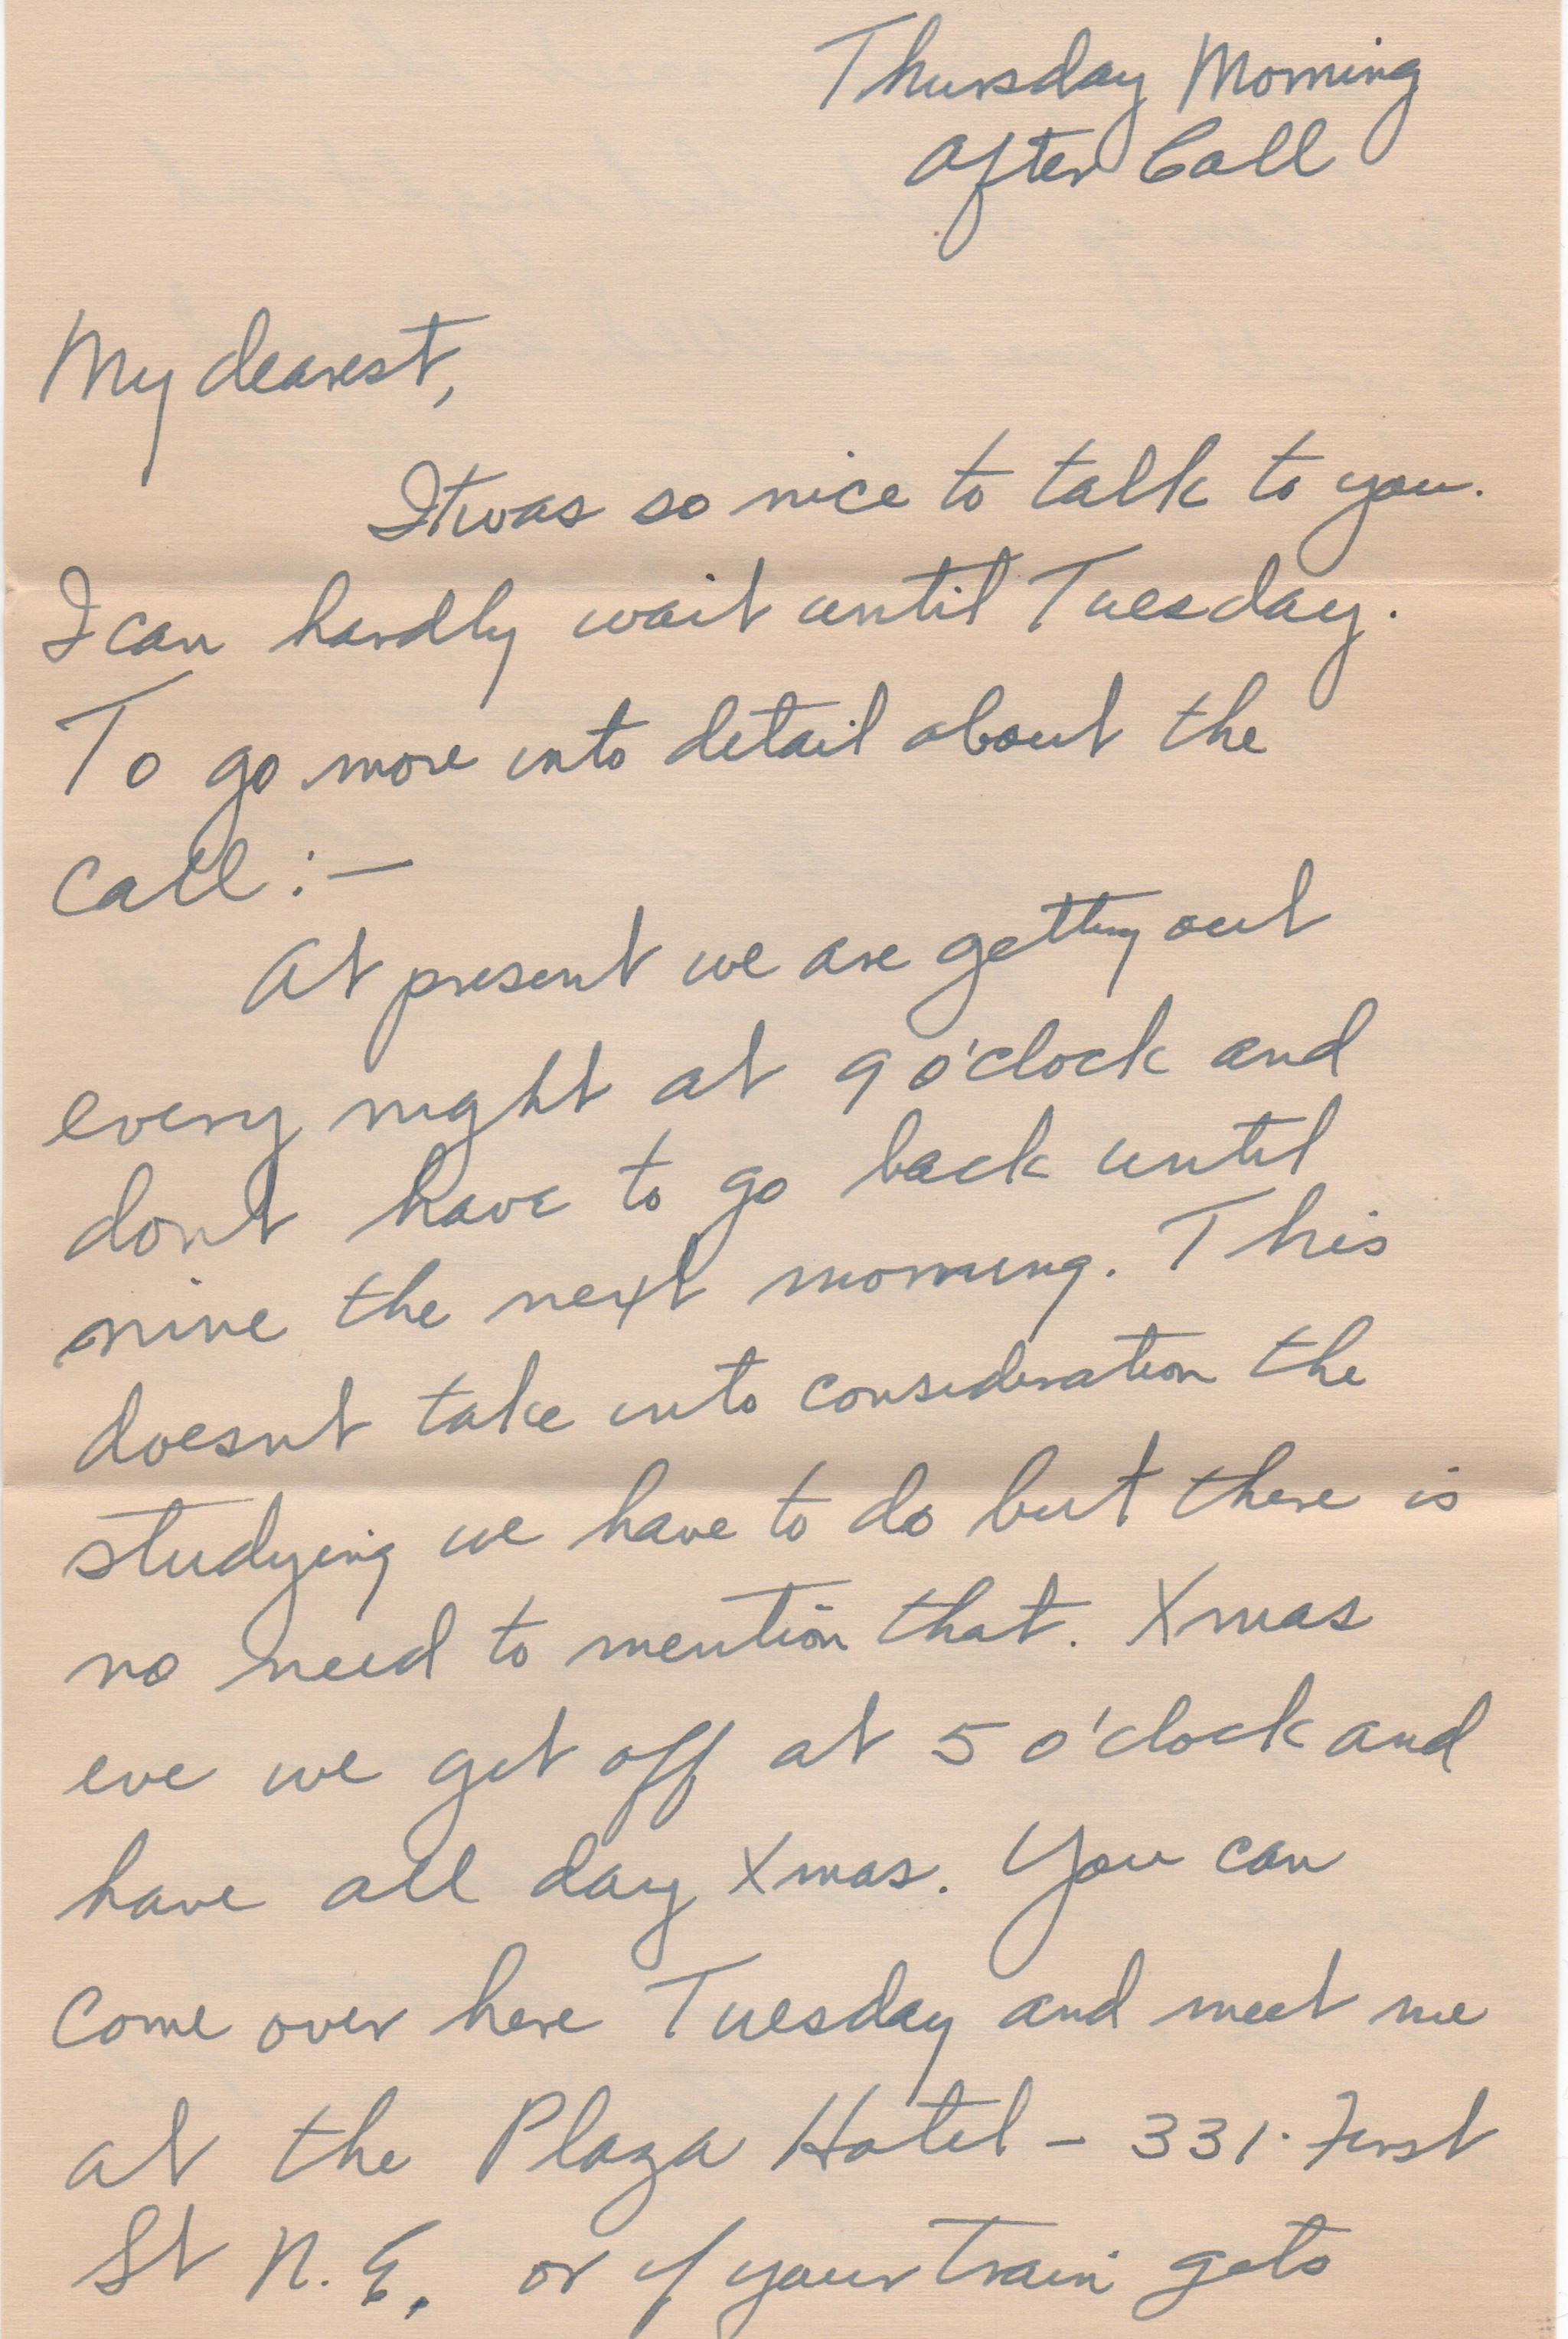 Thursday Morning
After Call
My dearest,
It was so nice to talk to you.
I can hardly wait until Tuesday.
To go more into detail about the
call :—
At present we are getting out
every night at 9 o'clock and
dont have to go back until
nine the next morning. This
doesnt take into consideration the
studying we have to do but there is
no need to mention that. Xmas
eve we get off at 5 o'clock and
have all day Xmas. You can
come over here Tuesday and meet me
at the Plaza Hotel – 331 First
St N.E. or if your train gets